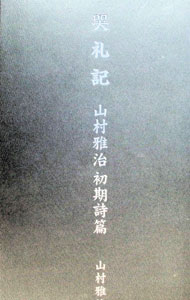 哭礼記
山村雅治 初期詩篇
山村雅